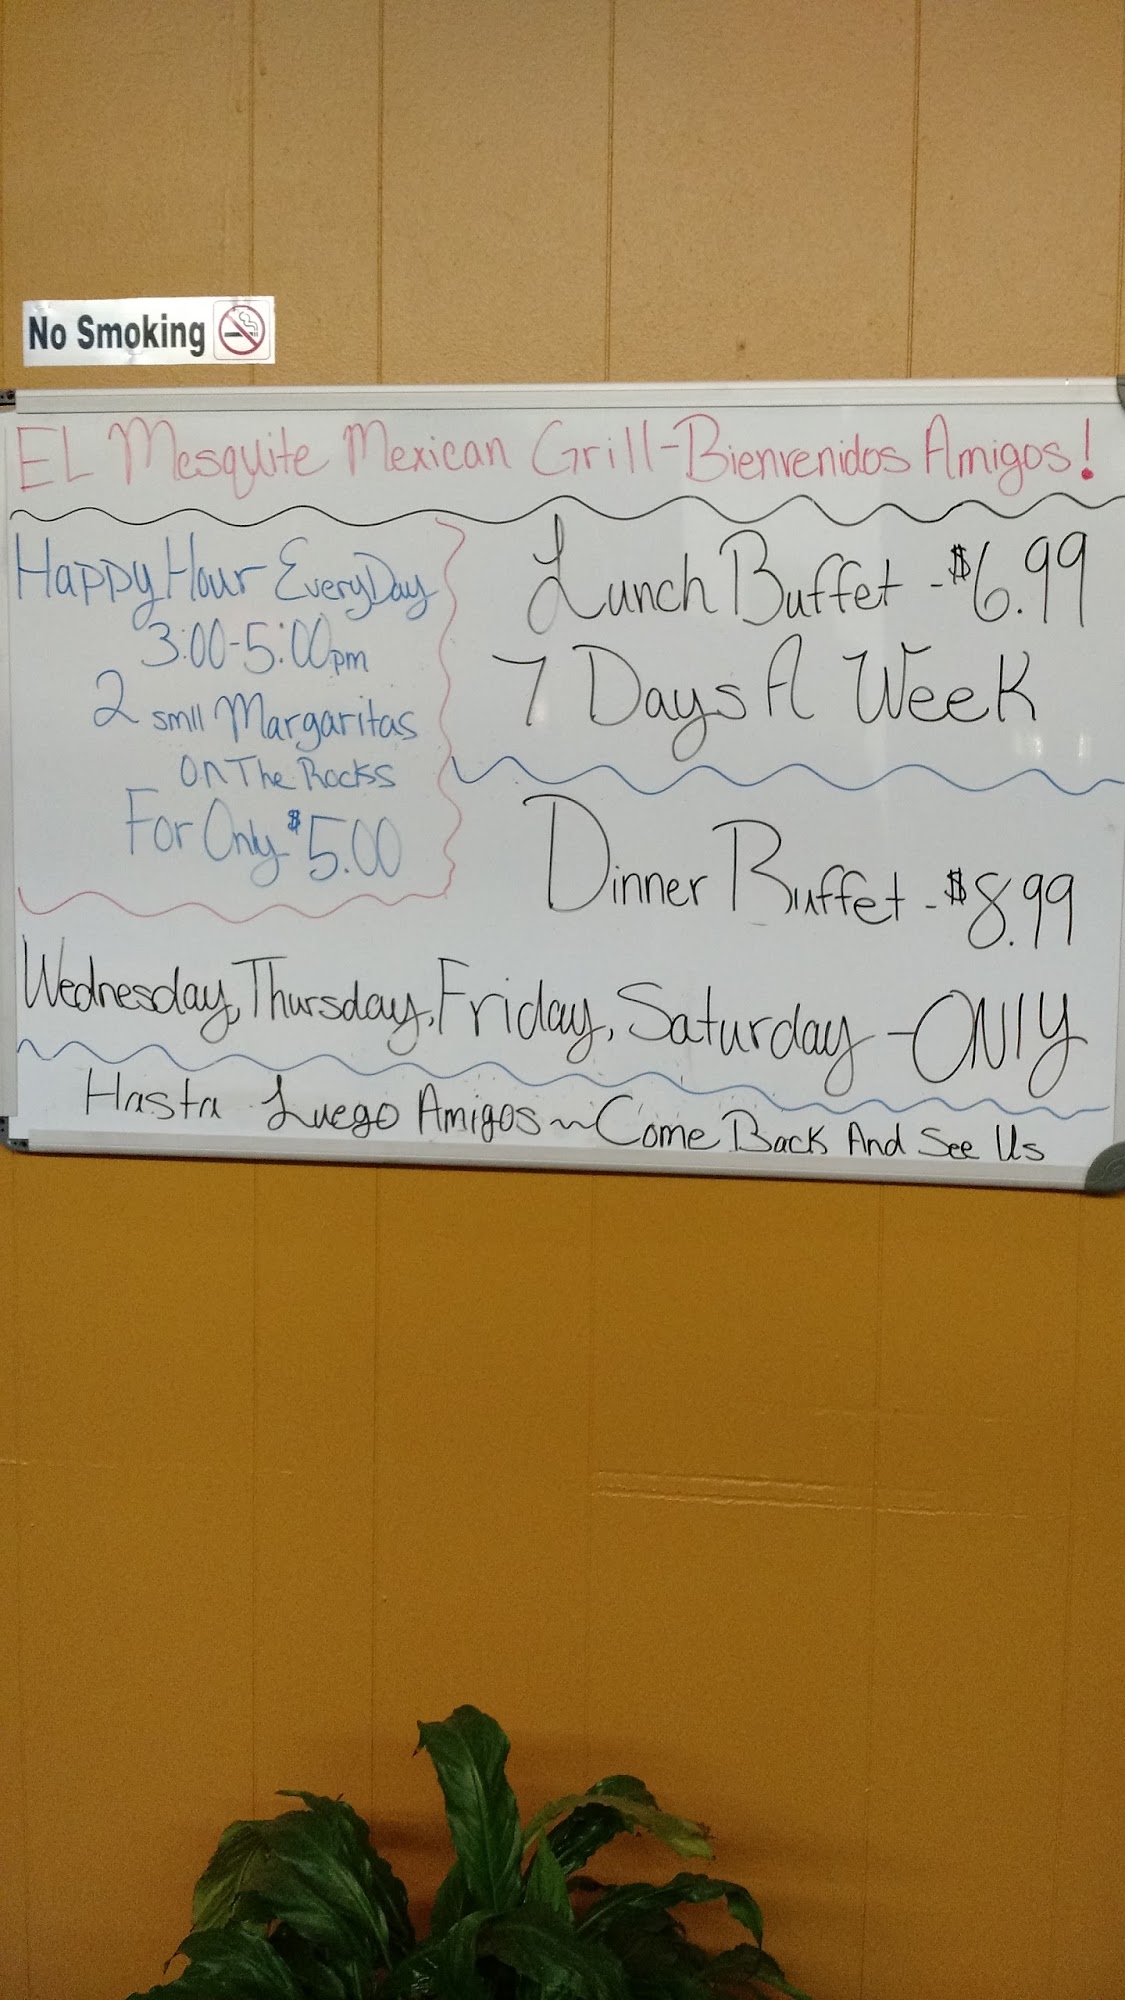 No Smoking
EL Mesquite Mexican Grill-Bienvenidos Amigos!
Happy Hour EveryDay
3:00-5:00pm
2 smll Margaritas
On The Rocks
For Only $5.00
Lunch Buffet - $6.99
7 Days A Week
Dinner Buffet - $8.99
Wednesday, Thursday, Friday, Saturday - ONlY
Hasta Luego Amigos ~ Come Back And See Us